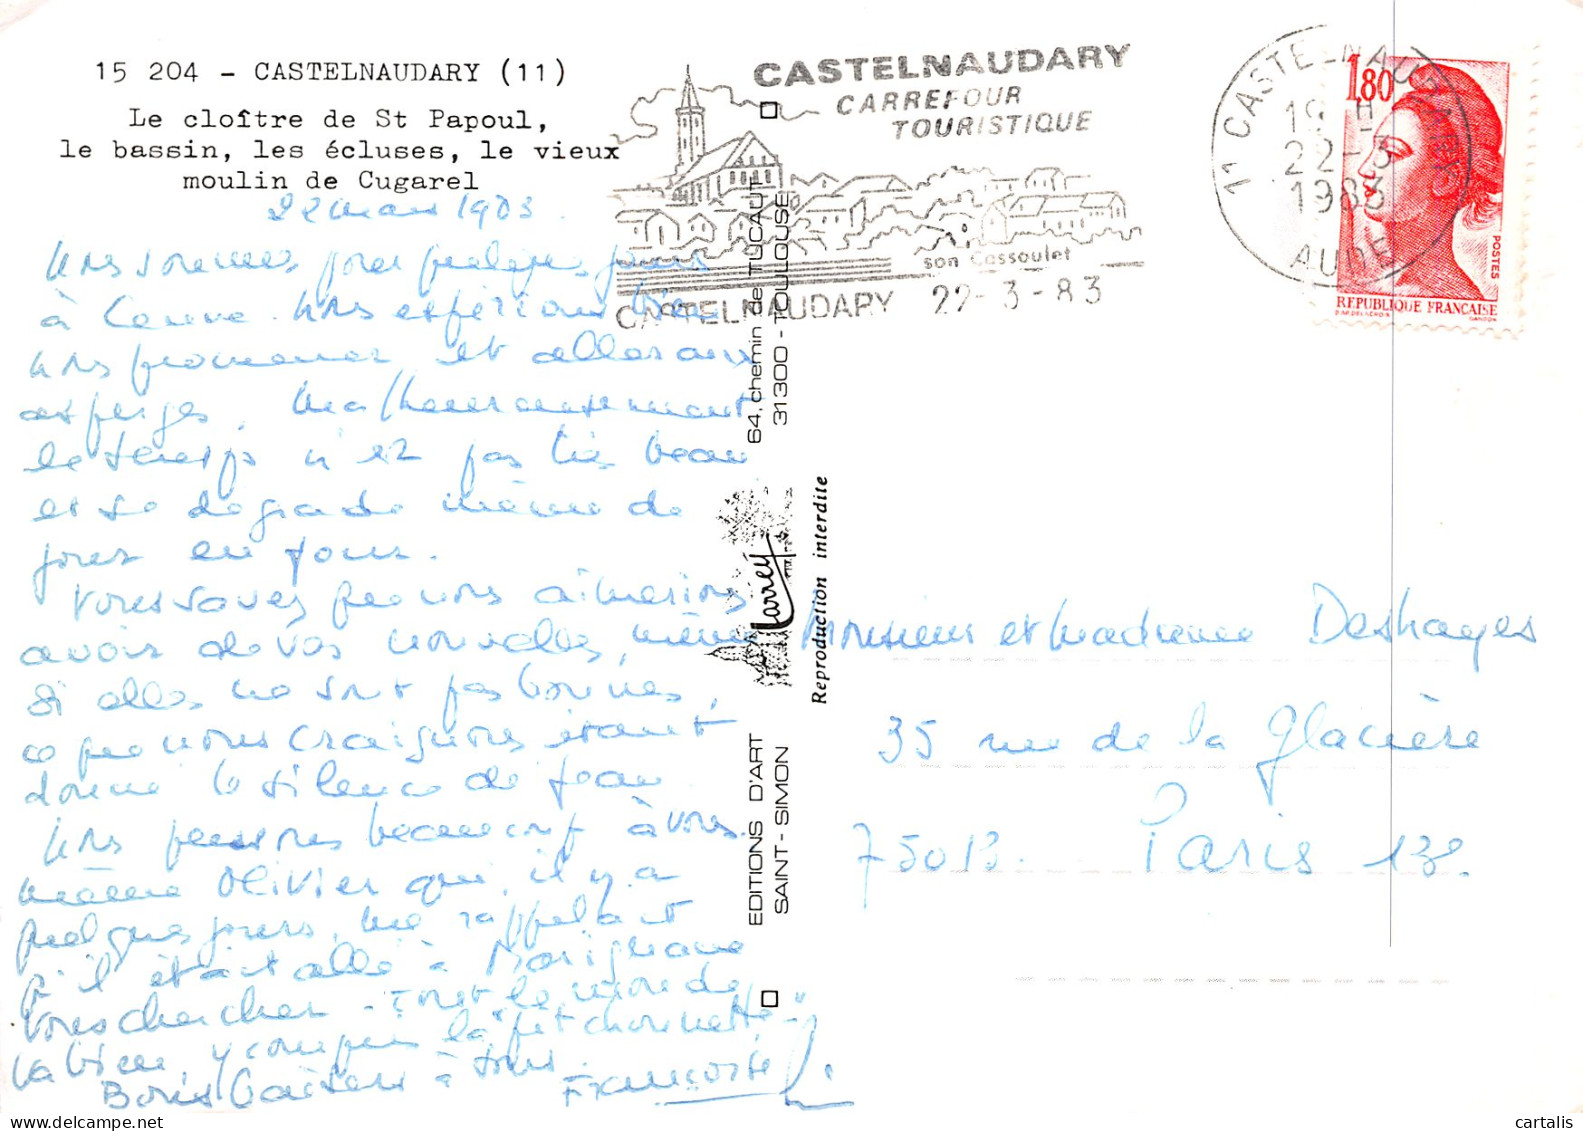 15 204 - CASTELNAUDARY (11)
Le cloître de St Papoul,
le bassin, les écluses, le vieux
moulin de Cugarel
CASTELNAUDARY
CARREFOUR
TOURISTIQUE
son Cassoulet
CASTELNAUDARY 22-3-83
11 CASTELNAUDARY
19 H
22-3
1983
AUDE
1,80
POSTES
REPUBLIQUE FRANÇAISE
GANDON
22 mars 1983.
Nous sommes pour quelques jours
à Cenne. Nous espérions bien
nous promener et aller aux
asperges. Malheureusement
le temps n'est pas très beau
et se dégrade même de
jour en jour.
Vous savez que nous aimerions
avoir de vos nouvelles, même
si elles ne sont pas bonnes,
ce que nous craignons étant
donné le silence de Jean
Nous pensons beaucoup à vous.
même Olivier qui, il y a
quelques jours, me rappelait
qu'il était allé à Marignane
vous chercher. Tout le monde
va bien, y compris la
Bons baisers à tous.
Françoise
64, chemin de TUCAUT
31300 - TOULOUSE
Larrey
Reproduction interdite
EDITIONS D'ART
SAINT-SIMON
Monsieur et Madame Deshayes
35 rue de la Glacière
75013. Paris 13e.
cartalis